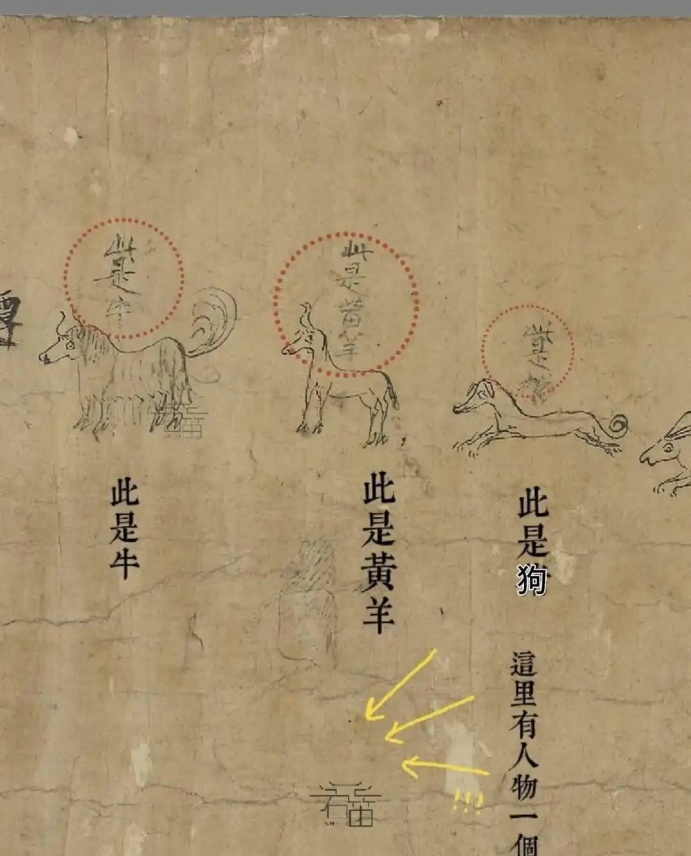 此是狗
此是狗
這里有人物一個
此是黃羊
此是黃羊
!!!
此是牛
此是牛